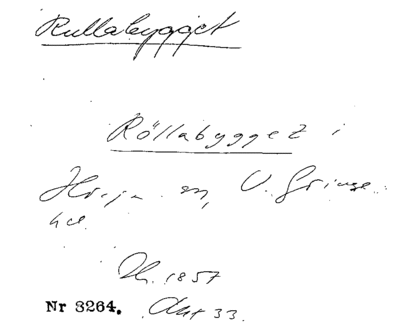 Rullabygget
Röllabygget i
Hörja sn, V. Göinge
hd.
Dh. 1857
Nr 3264. Akt 33.